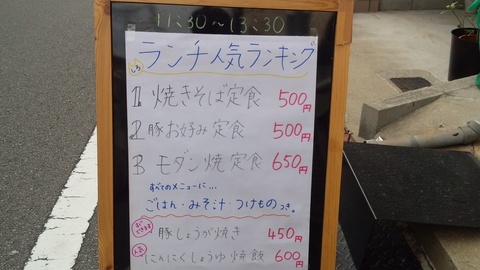 11:30～13:30
ランチ人気ランキング
1 焼きそば定食 500円
2 豚お好み定食 500円
3 モダン焼定食 650円
すべてのメニューに…
ごはん・みそ汁・つけものつき。
豚しょうが焼き 450円
人気 にんにくしょうゆ焼飯 600円